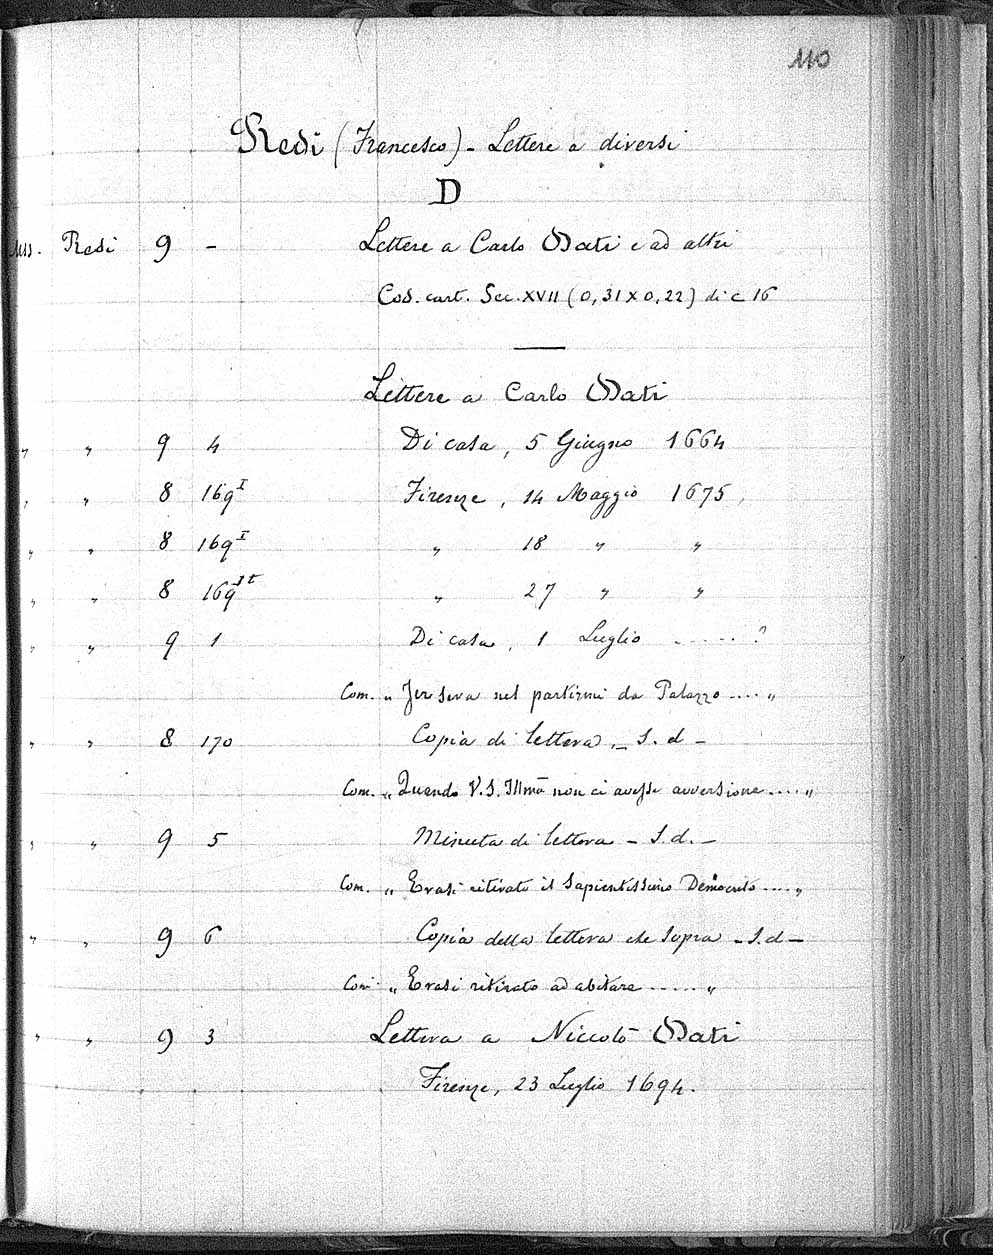 110
Redi (Francesco) - Lettere a diversi
D
Mss. Redi 9 - Lettere a Carlo Dati e ad altri
Cod. cart. Sec. XVII (0,31 x 0,22) di c 16
Lettere a Carlo Dati
" " 9 4 Di casa, 5 Giugno 1664
" " 8 169 I Firenze, 14 Maggio 1675,
" " 8 169 I " 18 " "
" " 8 169 " 27 " "
" " 9 1 Di casa, 1 Luglio ..... ?
Com. " Jer sera nel partirmi da Palazzo .... "
" " 8 170 Copia di lettera, - S. d -
Com. " Quando V. S. Illma non ci avesse avversione .... "
" " 9 5 Minuta di lettera - S. d. -
Com. " Erasi ritirato il Sapientissimo Democrito .... "
" " 9 6 Copia della lettera che sopra - S. d -
Com. " Erasi ritirato ad abitare ..... "
" " 9 3 Lettera a Niccolò Dati
Firenze, 23 Luglio 1694.